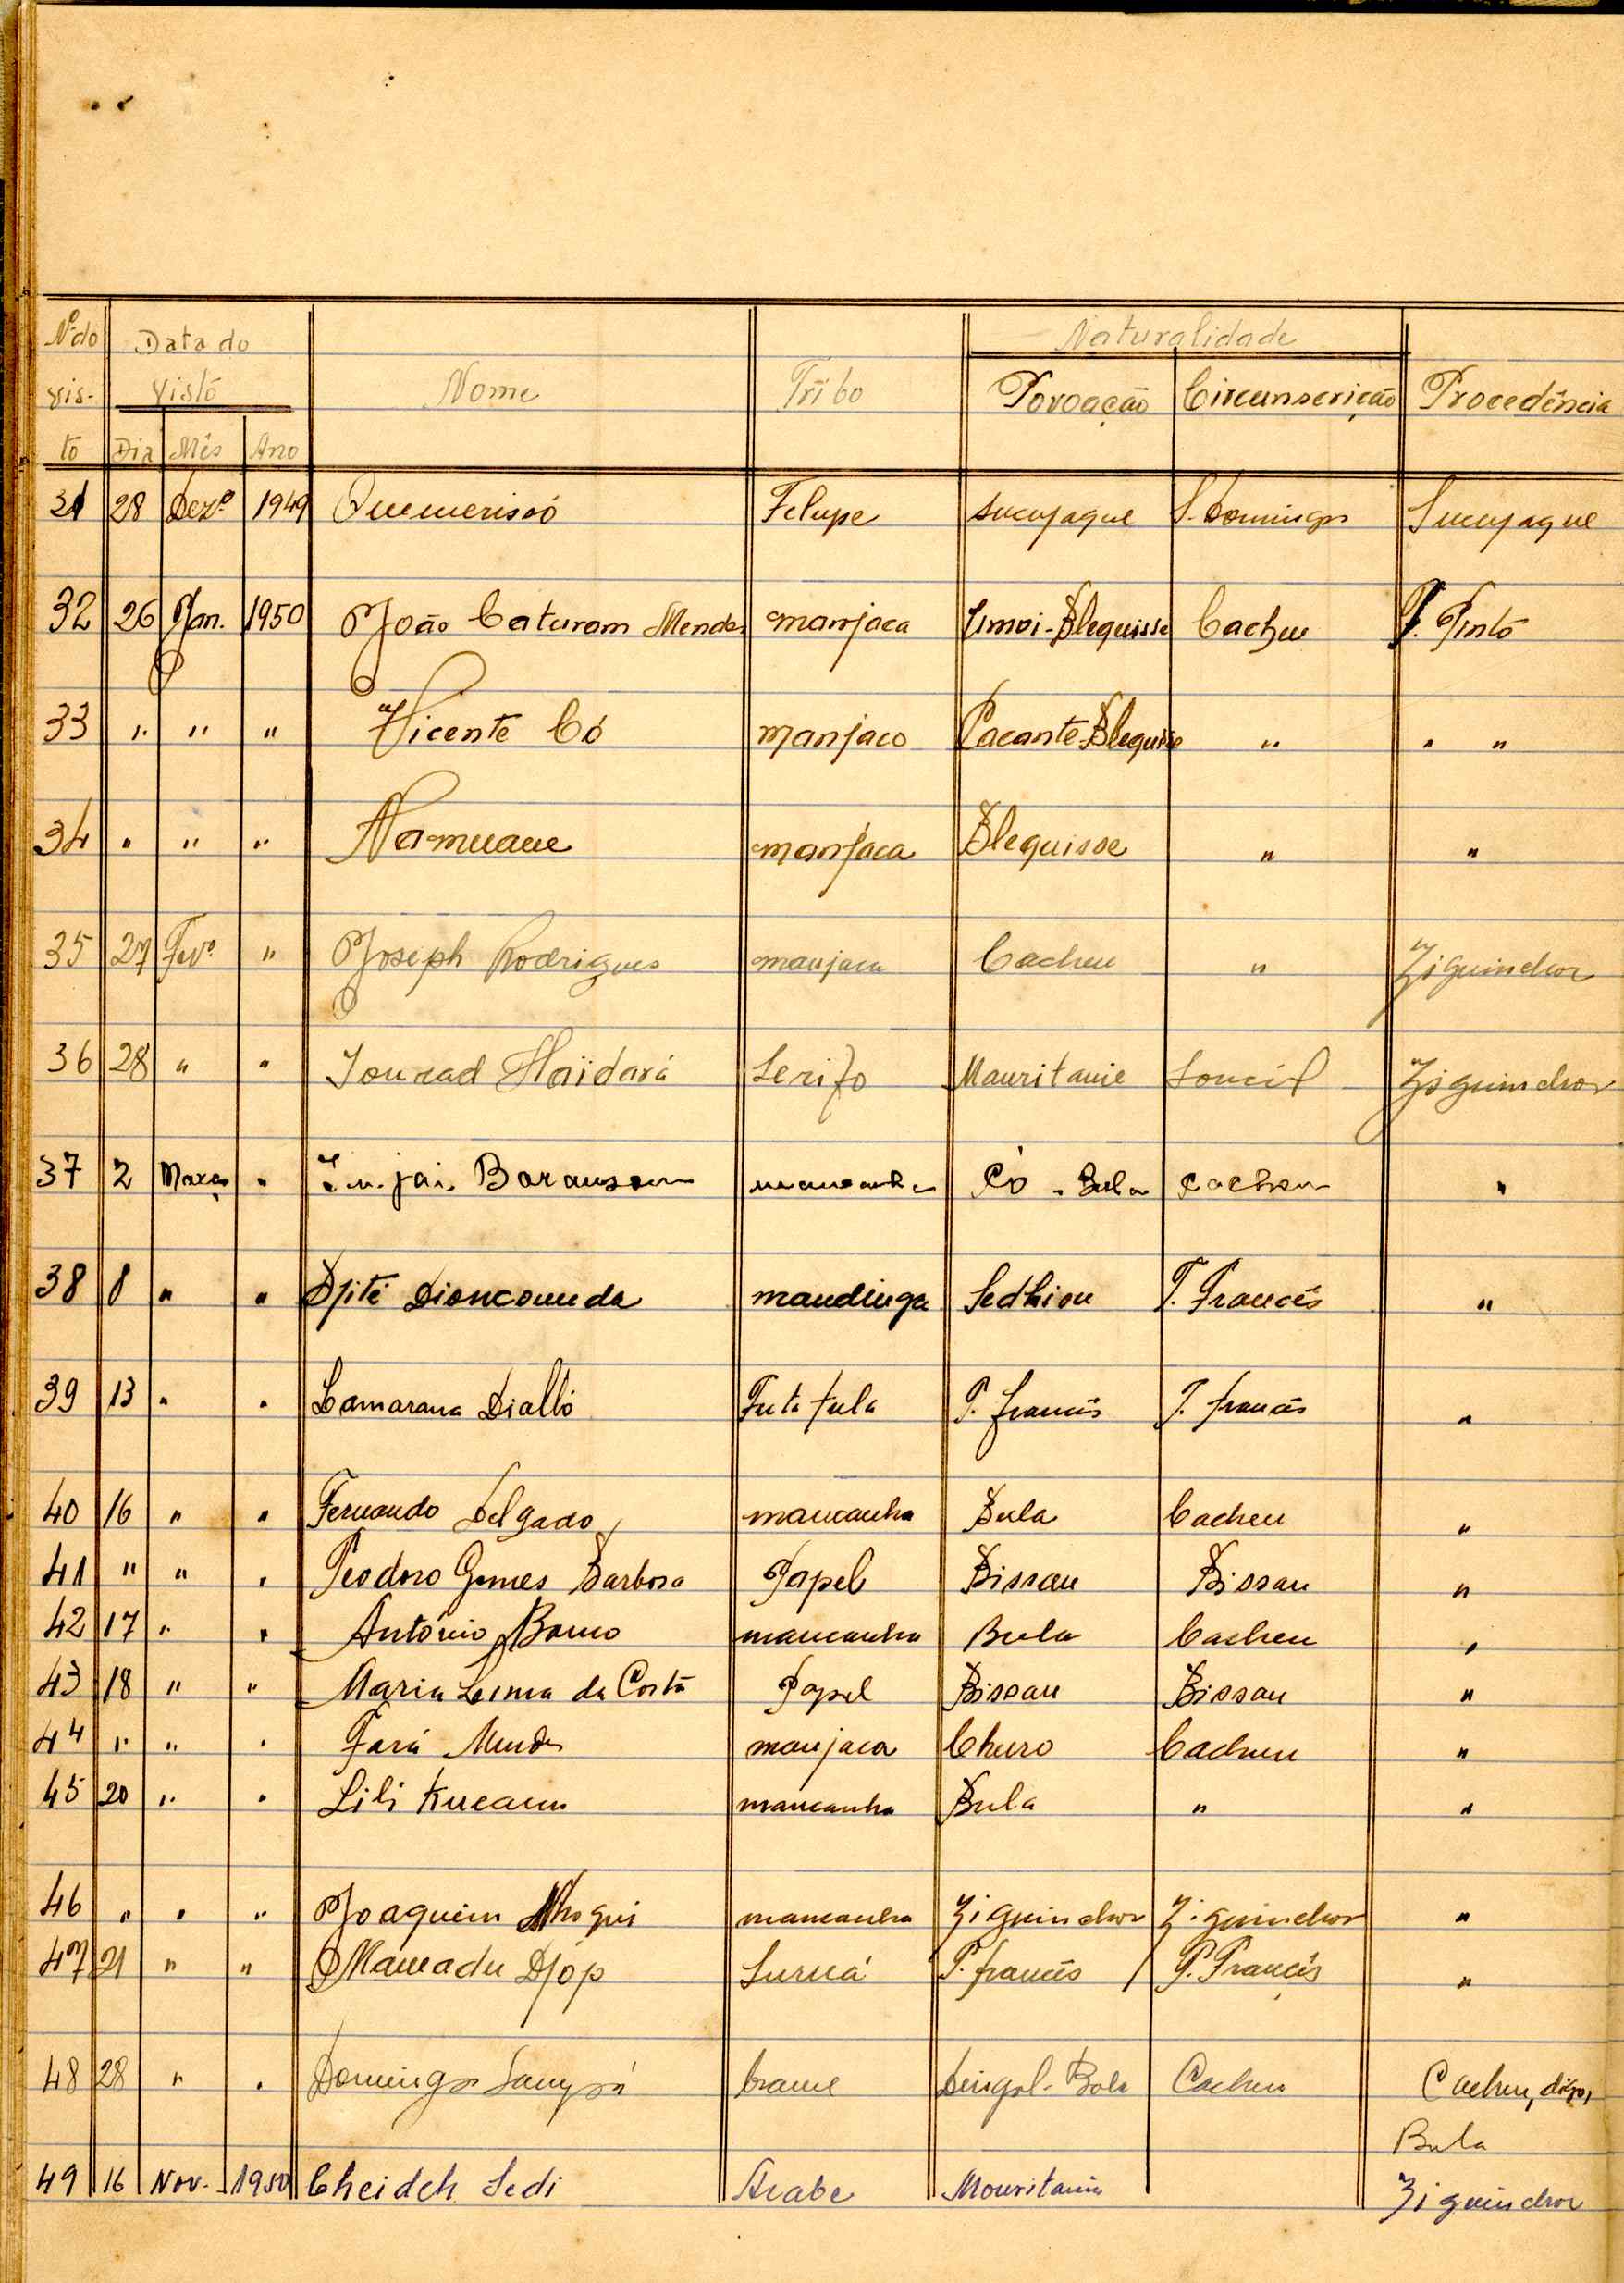 Nº do Data do Naturalidade
vis- Visto Nome Tribo Povoação Circunscrição Procedência
to Dia Mês Ano
31 28 Dezº 1949 Felupe Sucujaque S. Domingos Sucujaque
32 26 Jan. 1950 João Caturam Mendes manjaca Blequisse Cacheu T. Pinto
33 " " " Vicente Có manjaco Pacante-Blequisse " " "
34 " " " Namuaue manjaca Blequisse " "
35 27 Fevº " Joseph Rodrigues manjaca Cacheu " Ziguinchor
36 28 " " Haïdará Serifo Mauritanie Ziguinchor
37 2 Março " mancanha Có - Bula Cacheu "
38 8 " " Djité Dioncounda mandinga Sedhiou T. Francês "
39 13 " " Camarana Dialló Futa fula T. francês T. francês "
40 16 " " Fernando Delgado mancanha Bula Cacheu "
41 " " " Teodoro Gomes Barbosa Papel Bissau Bissau "
42 17 " " António mancanha Bula Cacheu "
43 18 " " Maria Lima da Costa Papel Bissau Bissau "
44 " " " Fará Mendes manjaca Churo Cacheu "
45 20 " " Lili mancanha Bula " "
46 " " " Joaquim mancanha Ziguinchor Ziguinchor "
47 21 " " Mamadu Djóp T. francês T. Francês "
48 28 " " Domingos brame Bula Cacheu Cacheu, digo,
Bula
49 16 Nov. 1950 Cheideh Sedi Arabe Mouritania Ziguinchor